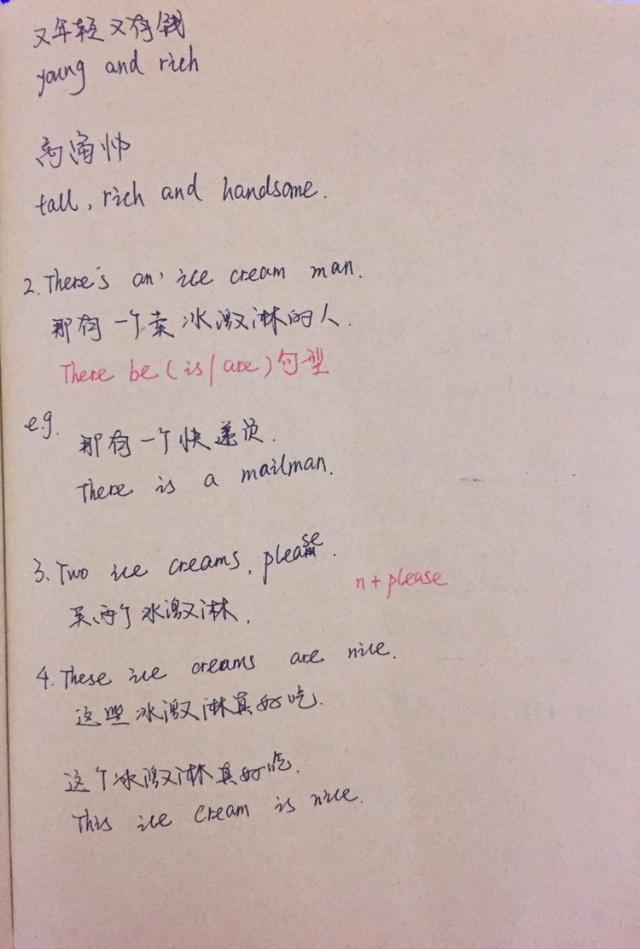 又年轻又有钱
young and rich
高富帅
tall, rich and handsome.
2. There's an ice cream man.
那有一个卖冰激淋的人.
There be (is/are)句型
e.g. 那有一个快递员.
There is a mailman.
3. Two ice creams, please.
n + please
买两个冰激淋.
4. These ice creams are nice.
这些冰激淋真好吃.
这个冰激淋真好吃.
This ice cream is nice.